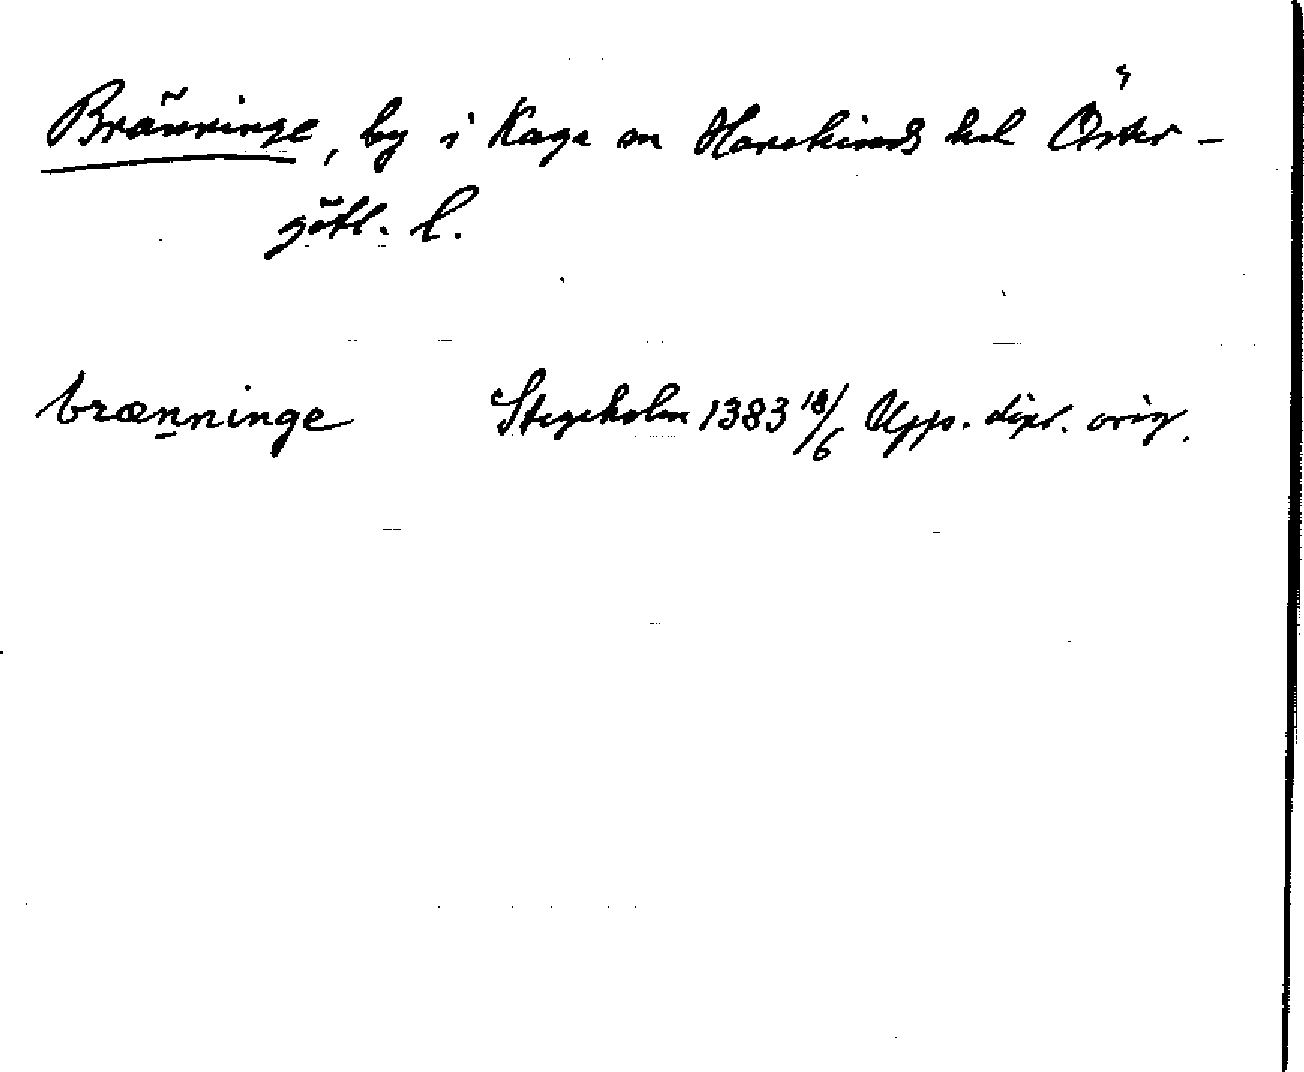 Bränninge, by i Kaga sn Hanekinds hd Öster-
götl. l.
brænninge Stegeholm 1383 18/6 Upps. dipl. orig.